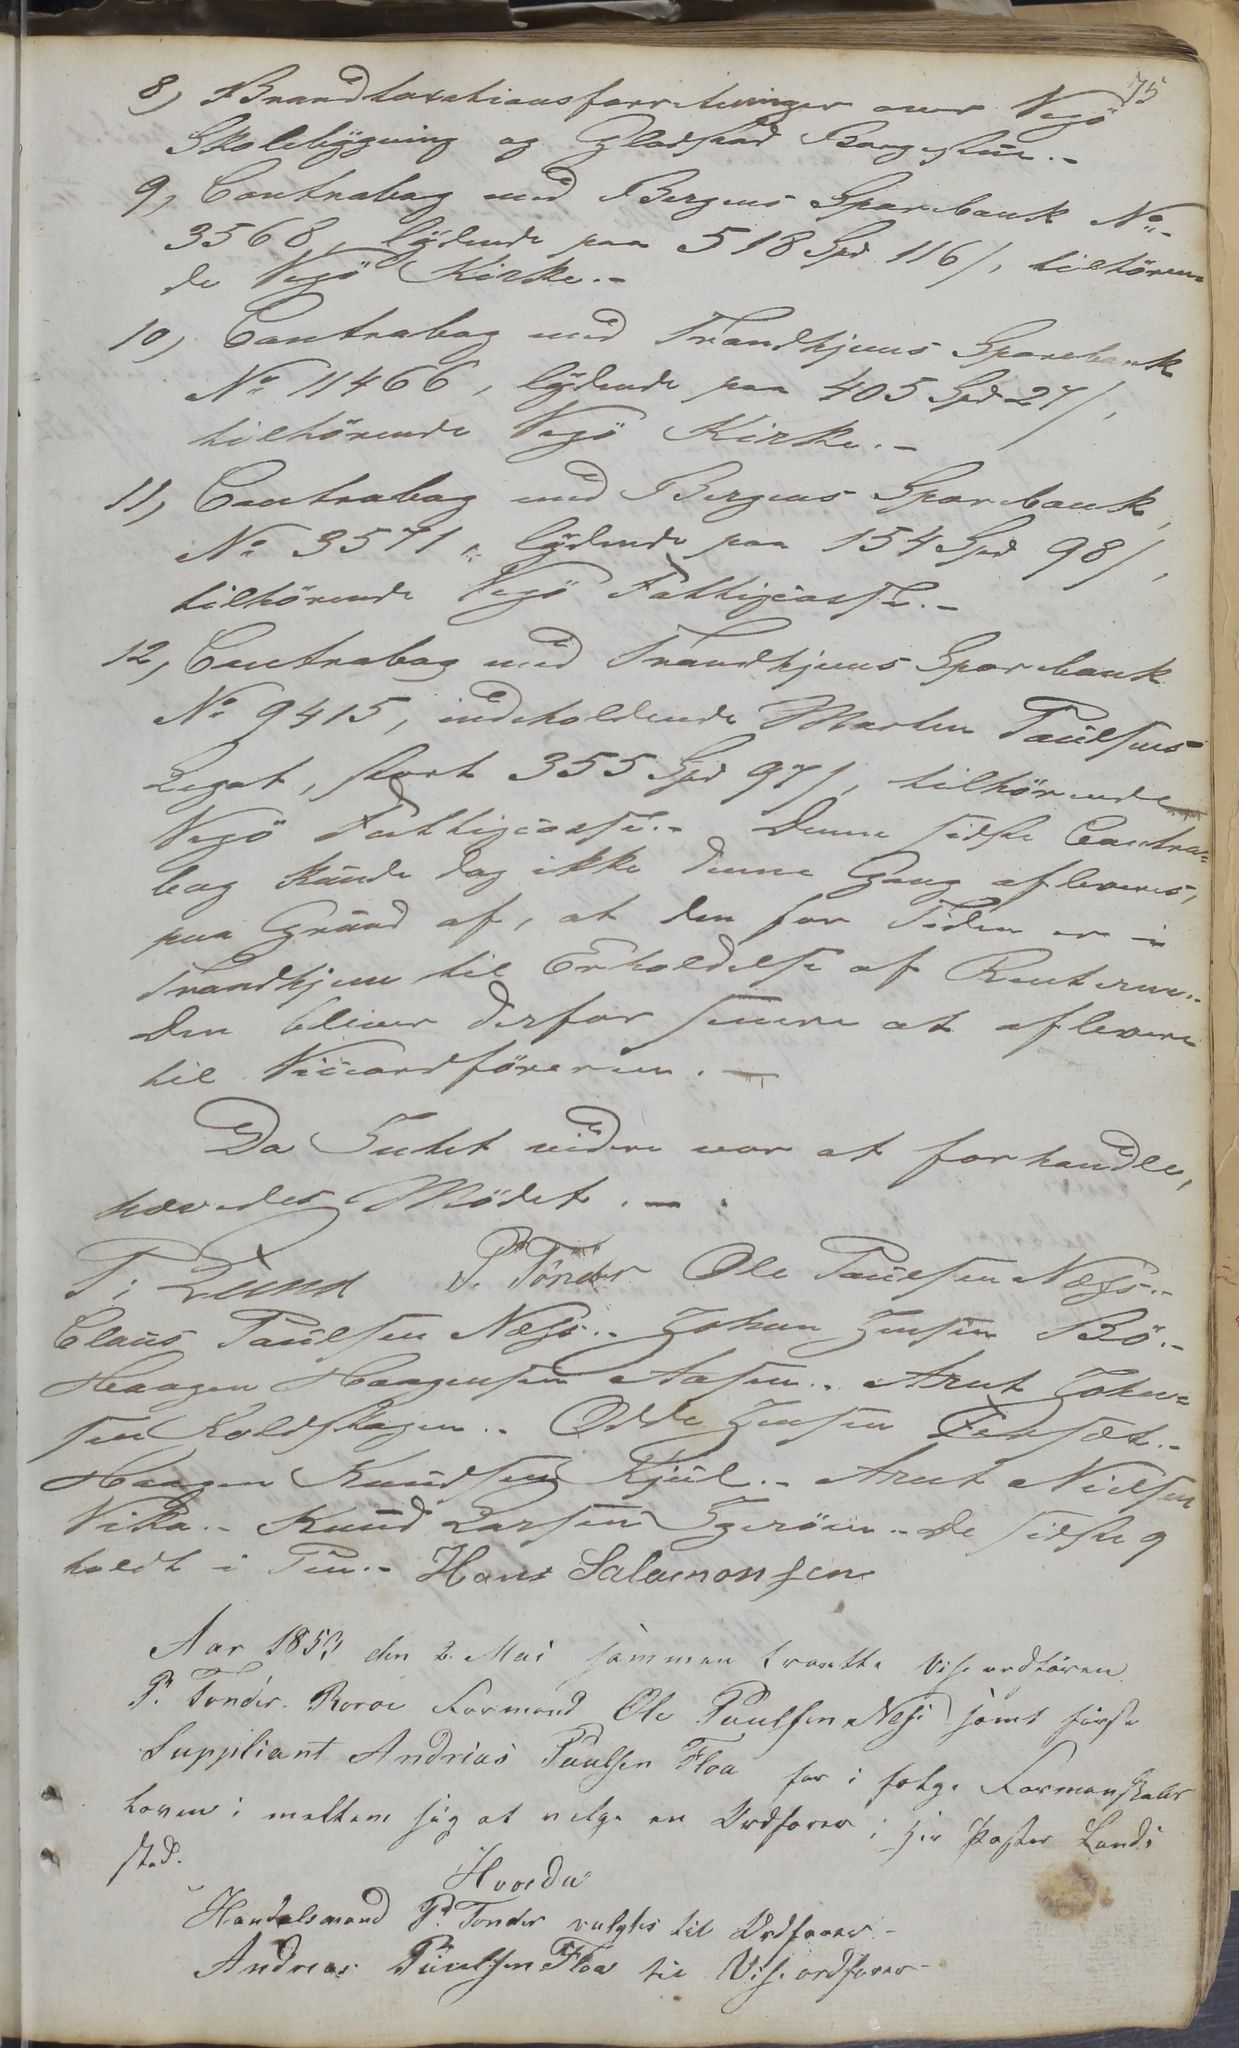 75
8, Brandtaxationsforretninger over Vegö
Skolebÿgning og Gladstad Borgestue.-
9, Contrabog med Bergens Sparebank No.-
3568, lÿdende paa 518 Spd 116/, tilhören-
de Vegö Kirke.-
10, Contrabog med Trondhjems Sparebank
No 11466, lÿdende paa 405 Spd 27/,
tilhörende Vegö Kirke.-
11, Contrabog med Bergens Sparebank,
No 3571, lÿdende paa 154 Spd 98/,
tilhörende Vegö Fattigcasse.-
12, Contrabog med Trondhjems Sparebank
No 9415, indeholdende Marten Paulsens
Legat, stort 355 Spd 97/, tilhörende
Vegö Fattigcasse.- Denne sidste Contra-
bog kunde dog ikke denne Gang afleveres,
paa Grund af, at den for Tiden er i
Trondhjem til Erholdelse af Renterne.-
Den bliver derfor senere at aflevere
til Viceordföreren.-
Da Intet videre var at forhandle,
hævedes Mödet.-
T: Lund P. Tönder Ole Paulsen Næss.-
Claus Paulsen Næss.- Johan Jensen Bö.-
Haagen Haagensen Aasen.- Arnt Johan-
sen Koldskagen.- Odde Jensen
Haagen Knudsen Kjul.- Arnt Nielsen
Vika.- Knud Larsen Igeröen.- De sidste 9
holdt i Pen.- Hans Salamonsen
Aar 1853 den 2. Mai sammen traatte Viseordfören
P. Tonder. Roroe Formand Ole Paulsen Nesse samt første
Suppliant Andrias Paulsen Floa for i folge Formanskabs
loven i mellem sig at velge en Ordforer i Her Paster Lunds
sted.
Hvorda
Handelsmand P. Tonder valgtes til Ordforer-
Andreas Paulsen Floa til Viseordforer-